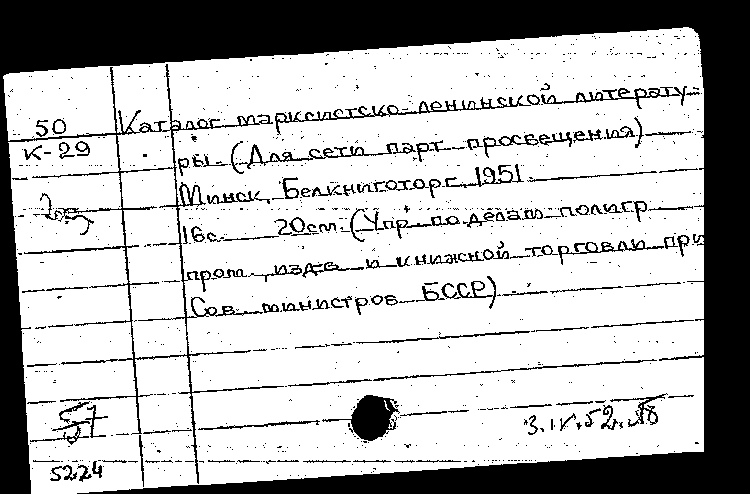 50
К-29
Каталог марксистско-ленинской литерату-
ры. (Для сети парт. просвещения)
Минск, Белкниготорг, 1951.
16с. 20см. (Упр. по делам полигр.
пром., изд-в и книжной торговли при
Сов. министров БССР).
57
5224
3.IV.52.